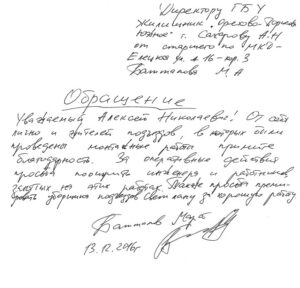 Директору ГБУ
Жилищник "Орехово-Борисово
Южное" г. Сахарову А.Н
от старшего по МКД-
Елецкая ул. д 16 - кор. 3
Баттапова М А
Обращение
Уважаемый Алексей Николаевич! От себя
лично и жителей подъездов, в которых были
проведены монтажные работы примите
благодарность. За оперативные действия
просьба поощрить инженера и работников
занятых на этих работах. Также просьба преми-
ровать уборщика подъездов Светлану за хорошую работу
13.12.2016г